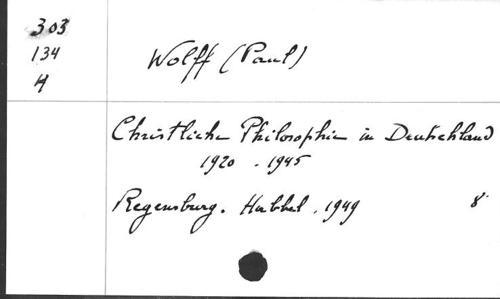 303
134
H
Wolff (Paul)
Christliche Philosophie in Deutschland
1920 - 1945
Regensburg. Habbel. 1949 8°